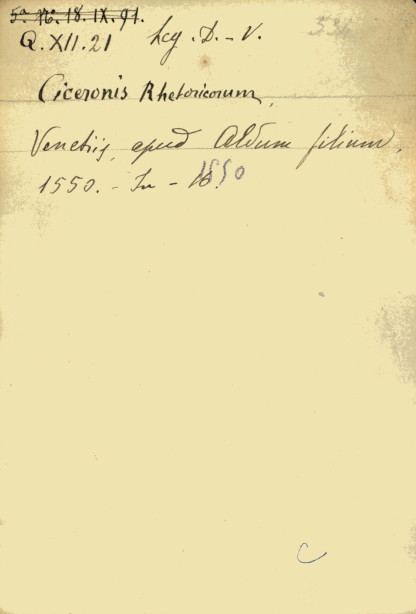 5ª Nº. 18. IX. 91.
Q. XII. 21 Leg. D. - V.
Ciceronis Rhetoricorum,
Venetiis, apud Aldum filium,
1550. - In - 16.
1550
C